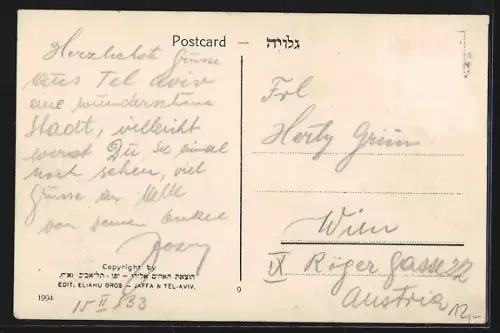 Postcard — גלויה
Herzlichste Grüsse
aus Tel Aviv
eine wunderschöne
Stadt, vielleicht
wirst Du sie einmal
noch sehen, viel
Grüsse an
von deinen Onkel
Frl
Herty Grün
Wien
IX Röger Gasse 22
Austria
12,-
Copyright by
הוצאת האחים אליהו - יפו - תל-אביב
EDIT. ELIAHU BROS - JAFFA & TEL-AVIV.
1994
9
15 II 933